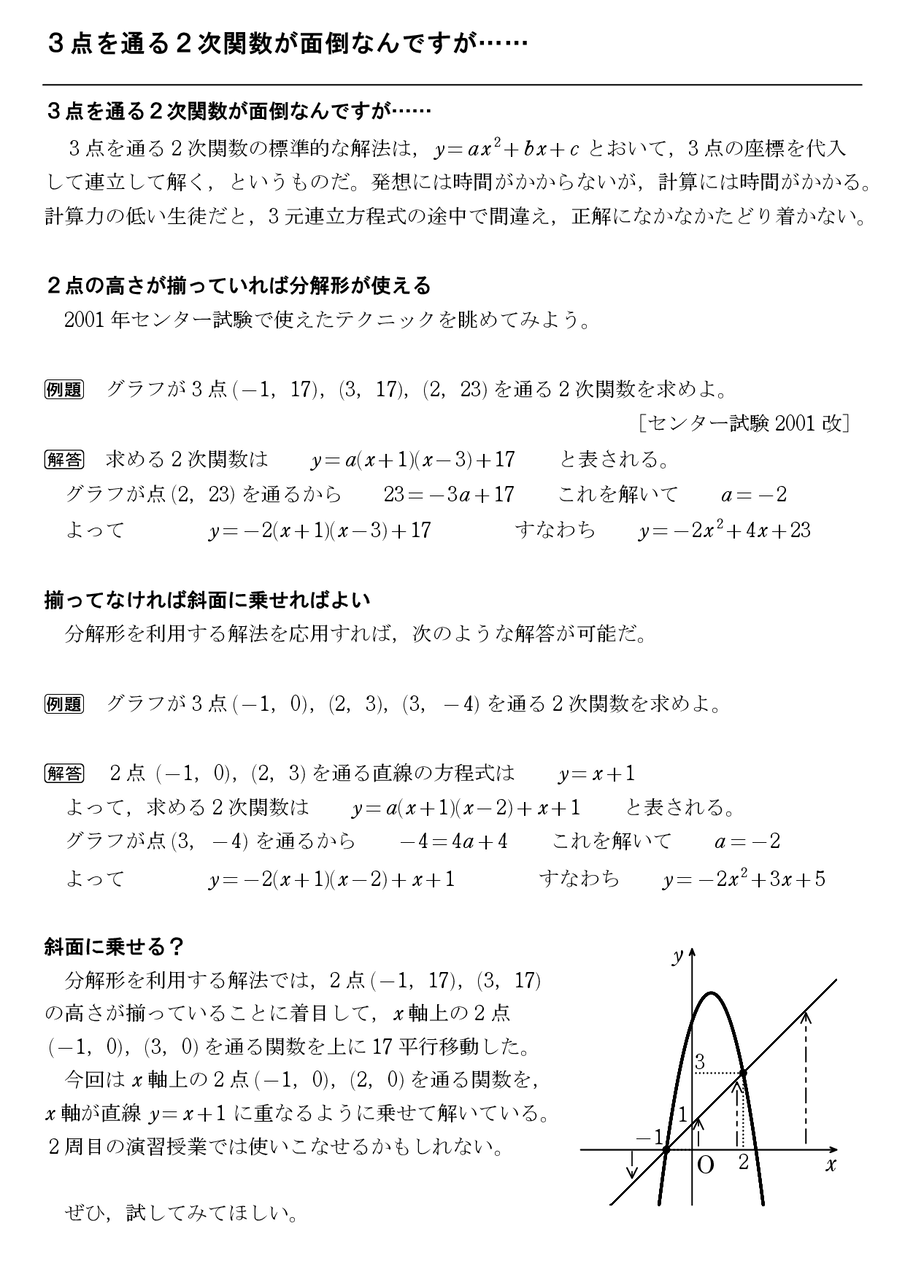 ３点を通る２次関数が面倒なんですが……
３点を通る２次関数が面倒なんですが……
３点を通る２次関数の標準的な解法は，y＝ax²＋bx＋c とおいて，3 点の座標を代入
して連立して解く，というものだ。発想には時間がかからないが，計算には時間がかかる。
計算力の低い生徒だと，3 元連立方程式の途中で間違え，正解になかなかたどり着かない。
２点の高さが揃っていれば分解形が使える
2001 年センター試験で使えたテクニックを眺めてみよう。
例題　グラフが 3 点 (−1，17)，(3，17)，(2，23) を通る 2 次関数を求めよ。
［センター試験 2001 改］
解答　求める 2 次関数は　　y＝a(x＋1)(x−3)＋17　　と表される。
グラフが点 (2，23) を通るから　　23＝−3a＋17　　これを解いて　　a＝−2
よって　　y＝−2(x＋1)(x−3)＋17　　すなわち　　y＝−2x²＋4x＋23
揃ってなければ斜面に乗せればよい
分解形を利用する解法を応用すれば，次のような解答が可能だ。
例題　グラフが 3 点 (−1，0)，(2，3)，(3，−4) を通る 2 次関数を求めよ。
解答　2 点 (−1，0)，(2，3) を通る直線の方程式は　　y＝x＋1
よって，求める 2 次関数は　　y＝a(x＋1)(x−2)＋x＋1　　と表される。
グラフが点 (3，−4) を通るから　　−4＝4a＋4　　これを解いて　　a＝−2
よって　　y＝−2(x＋1)(x−2)＋x＋1　　すなわち　　y＝−2x²＋3x＋5
斜面に乗せる？
分解形を利用する解法では，2 点 (−1，17)，(3，17)
の高さが揃っていることに着目して，x 軸上の 2 点
(−1，0)，(3，0) を通る関数を上に 17 平行移動した。
今回は x 軸上の 2 点 (−1，0)，(2，0) を通る関数を，
x 軸が直線 y＝x＋1 に重なるように乗せて解いている。
２周目の演習授業では使いこなせるかもしれない。
ぜひ，試してみてほしい。
y
3
1
−1
O
2
x